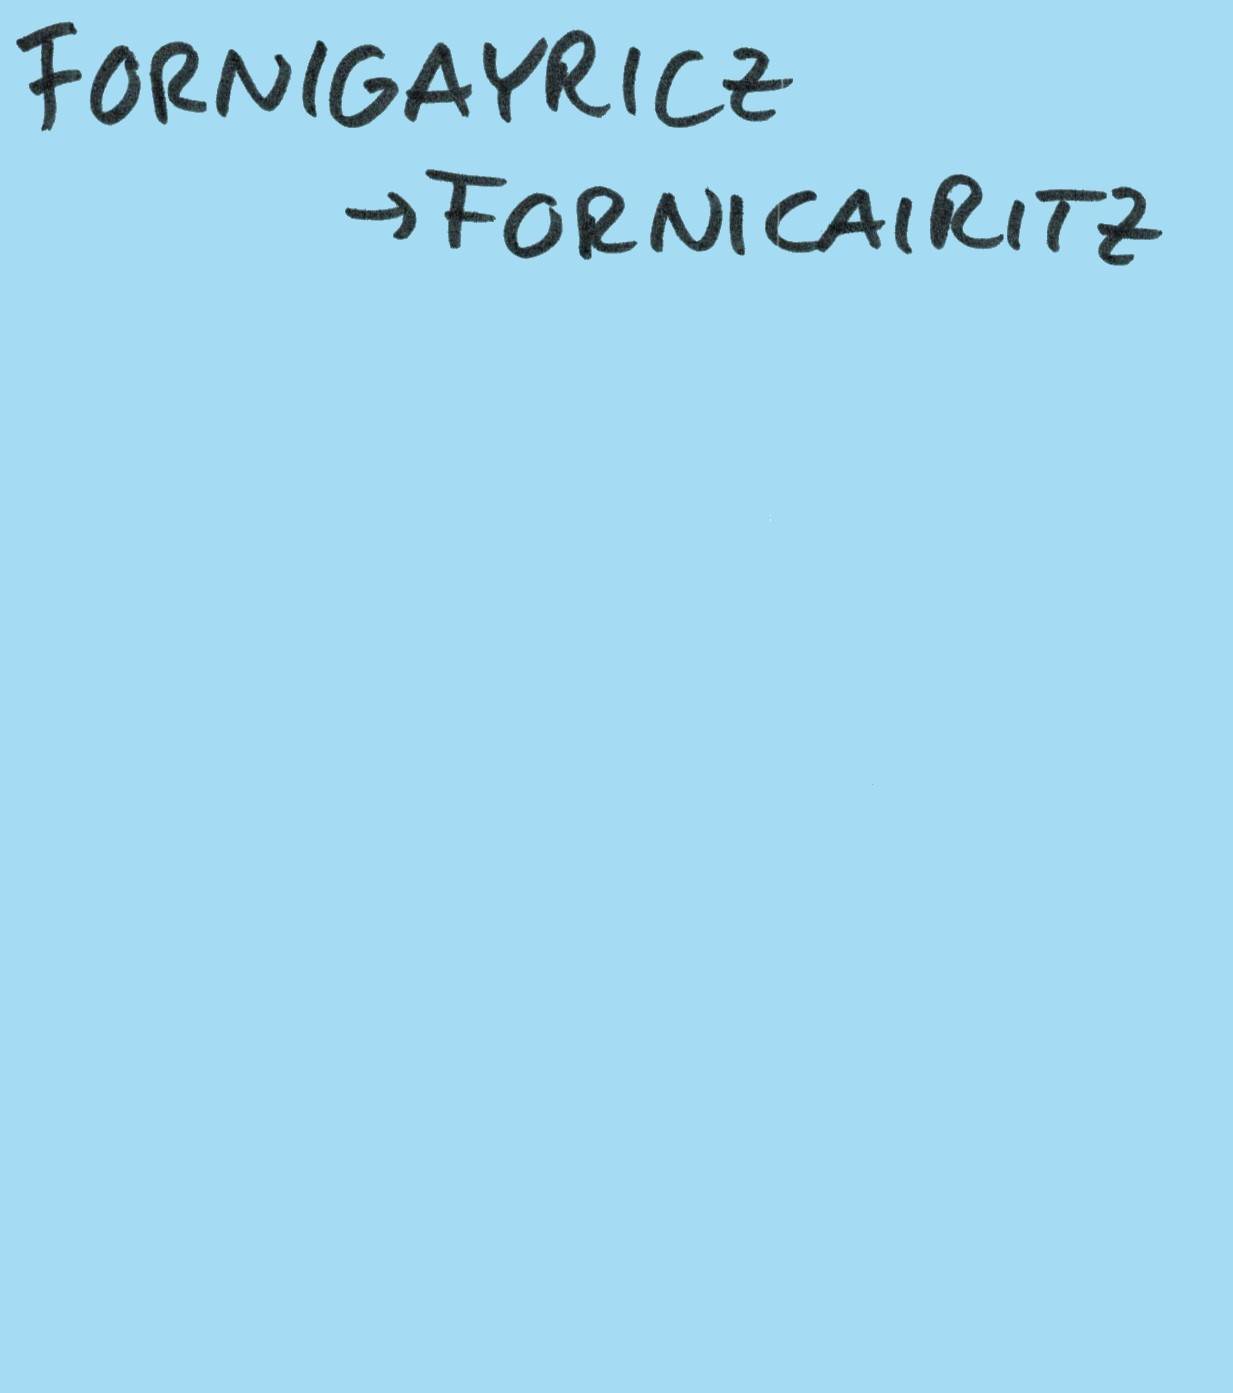 FORNIGAYRICZ
→FORNICAIRITZ